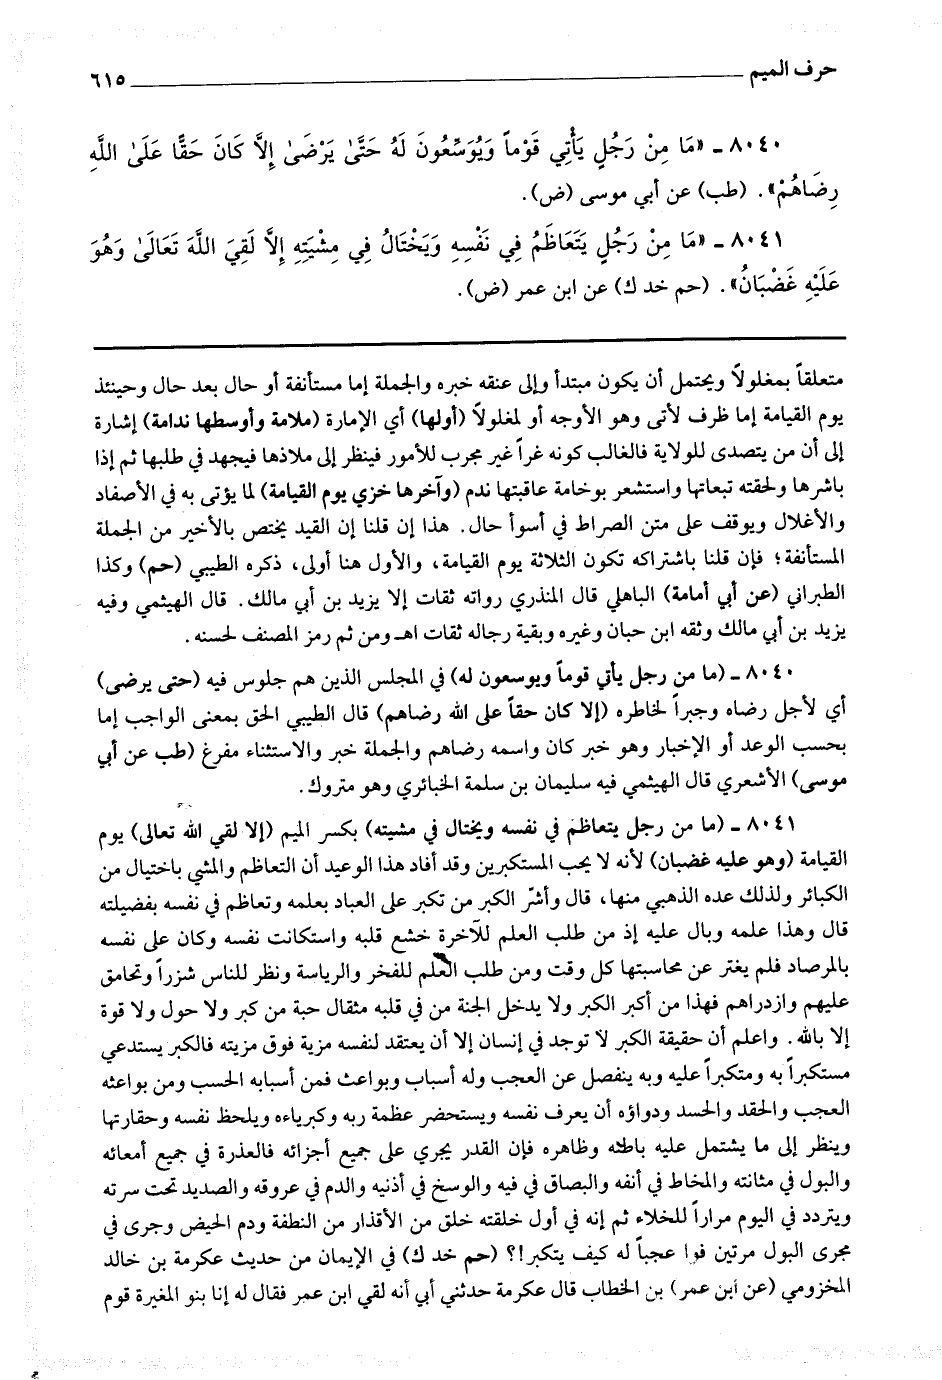 حرف الميم ٦١٥
٨٠٤٠ ـ «مَا مِنْ رَجُلٍ يَأْتِي قَوْماً وَيُوَسِّعُونَ لَهُ حَتَّىٰ يَرْضَىٰ إِلاَّ كَانَ حَقًّا عَلَىٰ اللَّهِ
رِضَاهُمْ». (طب) عن أبي موسى (ض).
٨٠٤١ ـ «مَا مِنْ رَجُلٍ يَتَعَاظَمُ فِي نَفْسِهِ وَيَخْتَالُ فِي مِشْيَتِهِ إِلاَّ لَقِيَ اللَّهَ تَعَالَىٰ وَهُوَ
عَلَيْهِ غَضْبَانُ». (حم خد ك) عن ابن عمر (ض).
متعلقاً بمغلولاً ويحتمل أن يكون مبتدأ وإلى عنقه خبره والجملة إما مستأنفة أو حال بعد حال وحينئذ
يوم القيامة إما ظرف لأتى وهو الأوجه أو لمغلولاً (أولها) أي الإمارة (ملامة وأوسطها ندامة) إشارة
إلى أن من يتصدى للولاية فالغالب كونه غراً غير مجرب للأمور فينظر إلى ملاذها فيجهد في طلبها ثم إذا
باشرها ولحقته تبعاتها واستشعر بوخامة عاقبتها ندم (وآخرها خزي يوم القيامة) لما يؤتى به في الأصفاد
والأغلال ويوقف على متن الصراط في أسوأ حال. هذا إن قلنا إن القيد يختص بالأخير من الجملة
المستأنفة؛ فإن قلنا باشتراكه تكون الثلاثة يوم القيامة، والأول هنا أولى، ذكره الطيبي (حم) وكذا
الطبراني (عن أبي أمامة) الباهلي قال المنذري رواته ثقات إلا يزيد بن أبي مالك. قال الهيثمي وفيه
يزيد بن أبي مالك وثقه ابن حبان وغيره وبقية رجاله ثقات اهـ ومن ثم رمز المصنف لحسنه.
٨٠٤٠ ـ (ما من رجل يأتي قوماً ويوسعون له) في المجلس الذين هم جلوس فيه (حتى يرضى)
أي لأجل رضاه وجبراً لخاطره (إلا كان حقاً على الله رضاهم) قال الطيبي الحق بمعنى الواجب إما
بحسب الوعد أو الإخبار وهو خبر كان واسمه رضاهم والجملة خبر والاستثناء مفرغ (طب عن أبي
موسى) الأشعري قال الهيثمي فيه سليمان بن سلمة الخبائري وهو متروك.
٨٠٤١ ـ (ما من رجل يتعاظم في نفسه ويختال في مشيته) بكسر الميم (إلا لقي الله تعالى) يوم
القيامة (وهو عليه غضبان) لأنه لا يحب المستكبرين وقد أفاد هذا الوعيد أن التعاظم والمشي باختيال من
الكبائر ولذلك عده الذهبي منها، قال وأشرّ الكبر من تكبر على العباد بعلمه وتعاظم في نفسه بفضيلته
قال وهذا علمه وبال عليه إذ من طلب العلم للآخرة خشع قلبه واستكانت نفسه وكان على نفسه
بالمرصاد فلم يغتر عن محاسبتها كل وقت ومن طلب العلم للفخر والرياسة ونظر للناس شزراً وتحامق
عليهم وازدراهم فهذا من أكبر الكبر ولا يدخل الجنة من في قلبه مثقال حبة من كبر ولا حول ولا قوة
إلا بالله. واعلم أن حقيقة الكبر لا توجد في إنسان إلا أن يعتقد لنفسه مزية فوق مزيته فالكبر يستدعي
مستكبراً به ومتكبراً عليه وبه ينفصل عن العجب وله أسباب وبواعث فمن أسبابه الحسب ومن بواعثه
العجب والحقد والحسد ودواؤه أن يعرف نفسه ويستحضر عظمة ربه وكبرياءه ويلحظ نفسه وحقارتها
وينظر إلى ما يشتمل عليه باطنه وظاهره فإن القدر يجري على جميع أجزائه فالعذرة في جميع أمعائه
والبول في مثانته والمخاط في أنفه والبصاق في فيه والوسخ في أذنيه والدم في عروقه والصديد تحت سرته
ويتردد في اليوم مراراً للخلاء ثم إنه في أول خلقته خلق من الأقذار من النطفة ودم الحيض وجرى في
مجرى البول مرتين فوا عجباً له كيف يتكبر!؟ (حم خد ك) في الإيمان من حديث عكرمة بن خالد
المخزومي (عن ابن عمر) بن الخطاب قال عكرمة حدثني أبي أنه لقي ابن عمر فقال له إنا بنو المغيرة قوم